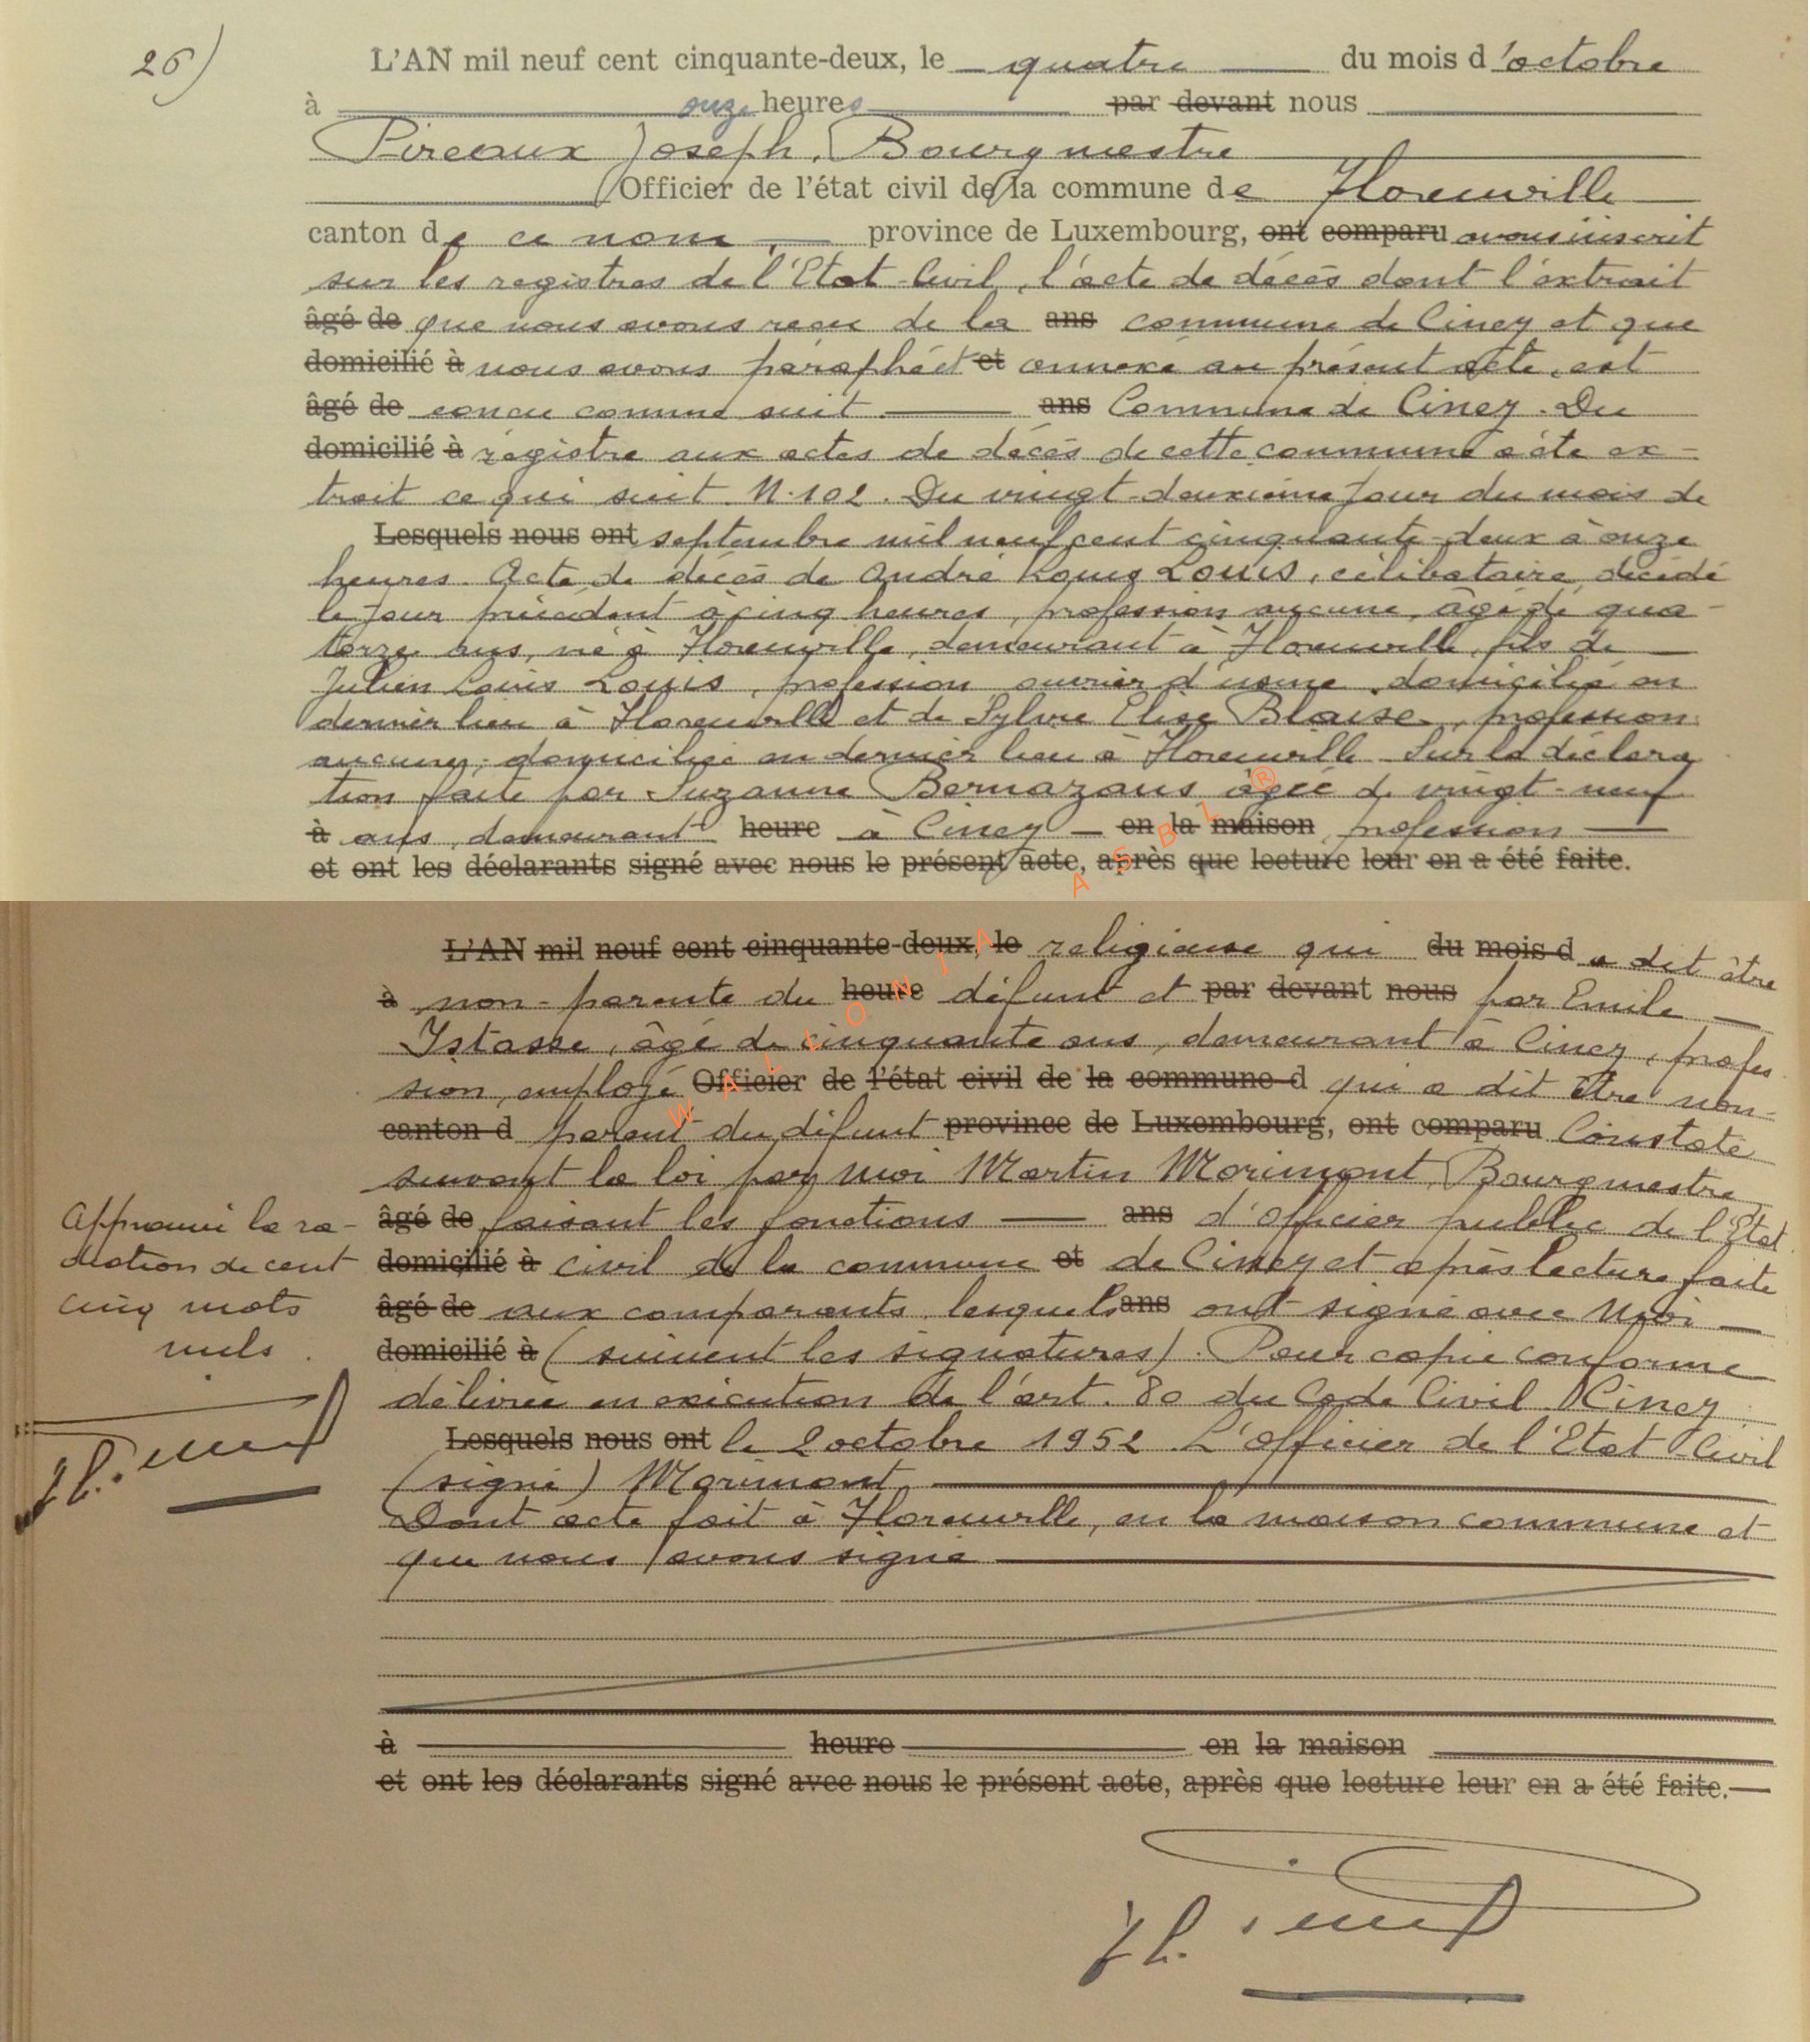 26)
L'AN mil neuf cent cinquante-deux, le quatre du mois d'octobre
à onze heures par devant nous
Pireaux Joseph, Bourgmestre
Officier de l'état civil de la commune de Florenville
canton de ce nom, province de Luxembourg, ont comparu avons inscrit
sur les registres de l'Etat-Civil, l'acte de décès dont l'extrait
âgé de que nous avons reçu de la ans commune de Ciney et que
domicilié à nous avons paraphé et et annexé au présent acte, est
âgé de conçu comme suit. ans Commune de Ciney. Du
domicilié à régistre aux actes de décès de cette commune a été ex-
trait ce qui suit. N. 102. Du vingt-deuxième jour du mois de
Lesquels nous ont septembre mil neuf cent cinquante-deux à onze
heures. Acte de décès de André Louis Louis, célibataire, décédé
le jour précédent à cinq heures, profession aucune, âgé de qua-
torze ans, né à Florenville, demeurant à Florenville, fils de
Julien Louis Louis, profession ouvrier d'usine, domicilié en
dernier lieu à Florenville et de Sylvie Elise Blaise, profession
aucune, domiciliée en dernier lieu à Florenville. Sur la déclara
tion faite par Suzanne Bernazans âgée de vingt-neuf
à ans, demeurant heure à Ciney en la maison, profession
et ont les déclarants signé avec nous le présent acte, après que lecture leur en a été faite.
WALLONIA ASBL ®
L'AN mil neuf cent cinquante-deux, le religieuse qui du mois d a dit être
à non-parente du heure défunt et par devant nous par Emile
Istasse, âgé de cinquante ans, demeurant à Ciney, profes
sion, employé Officier de l'état civil de la commune d qui a dit être non-
canton d parent du défunt province de Luxembourg, ont comparu Constaté
suivant la loi par moi Martin Morimont, Bourgmestre
âgé de faisant les fonctions ans d'officier public de l'Etat
domicilié à civil de la commune et de Ciney et après lecture faite
âgé de aux comparants, lesquels ans ont signé avec moi
domicilié à (suivent les signatures). Pour copie conforme
délivrée en exécution de l'art. 80 du Code Civil. Ciney
Lesquels nous ont le 2 octobre 1952. L'officier de l'Etat-Civil
(signé) Morimont
Dont acte fait à Florenville, en la maison commune et
que nous avons signé
Approuvé la ra-
diation de cent
cinq mots
nuls.
à heure en la maison
et ont les déclarants signé avec nous le présent acte, après que lecture leur en a été faite.